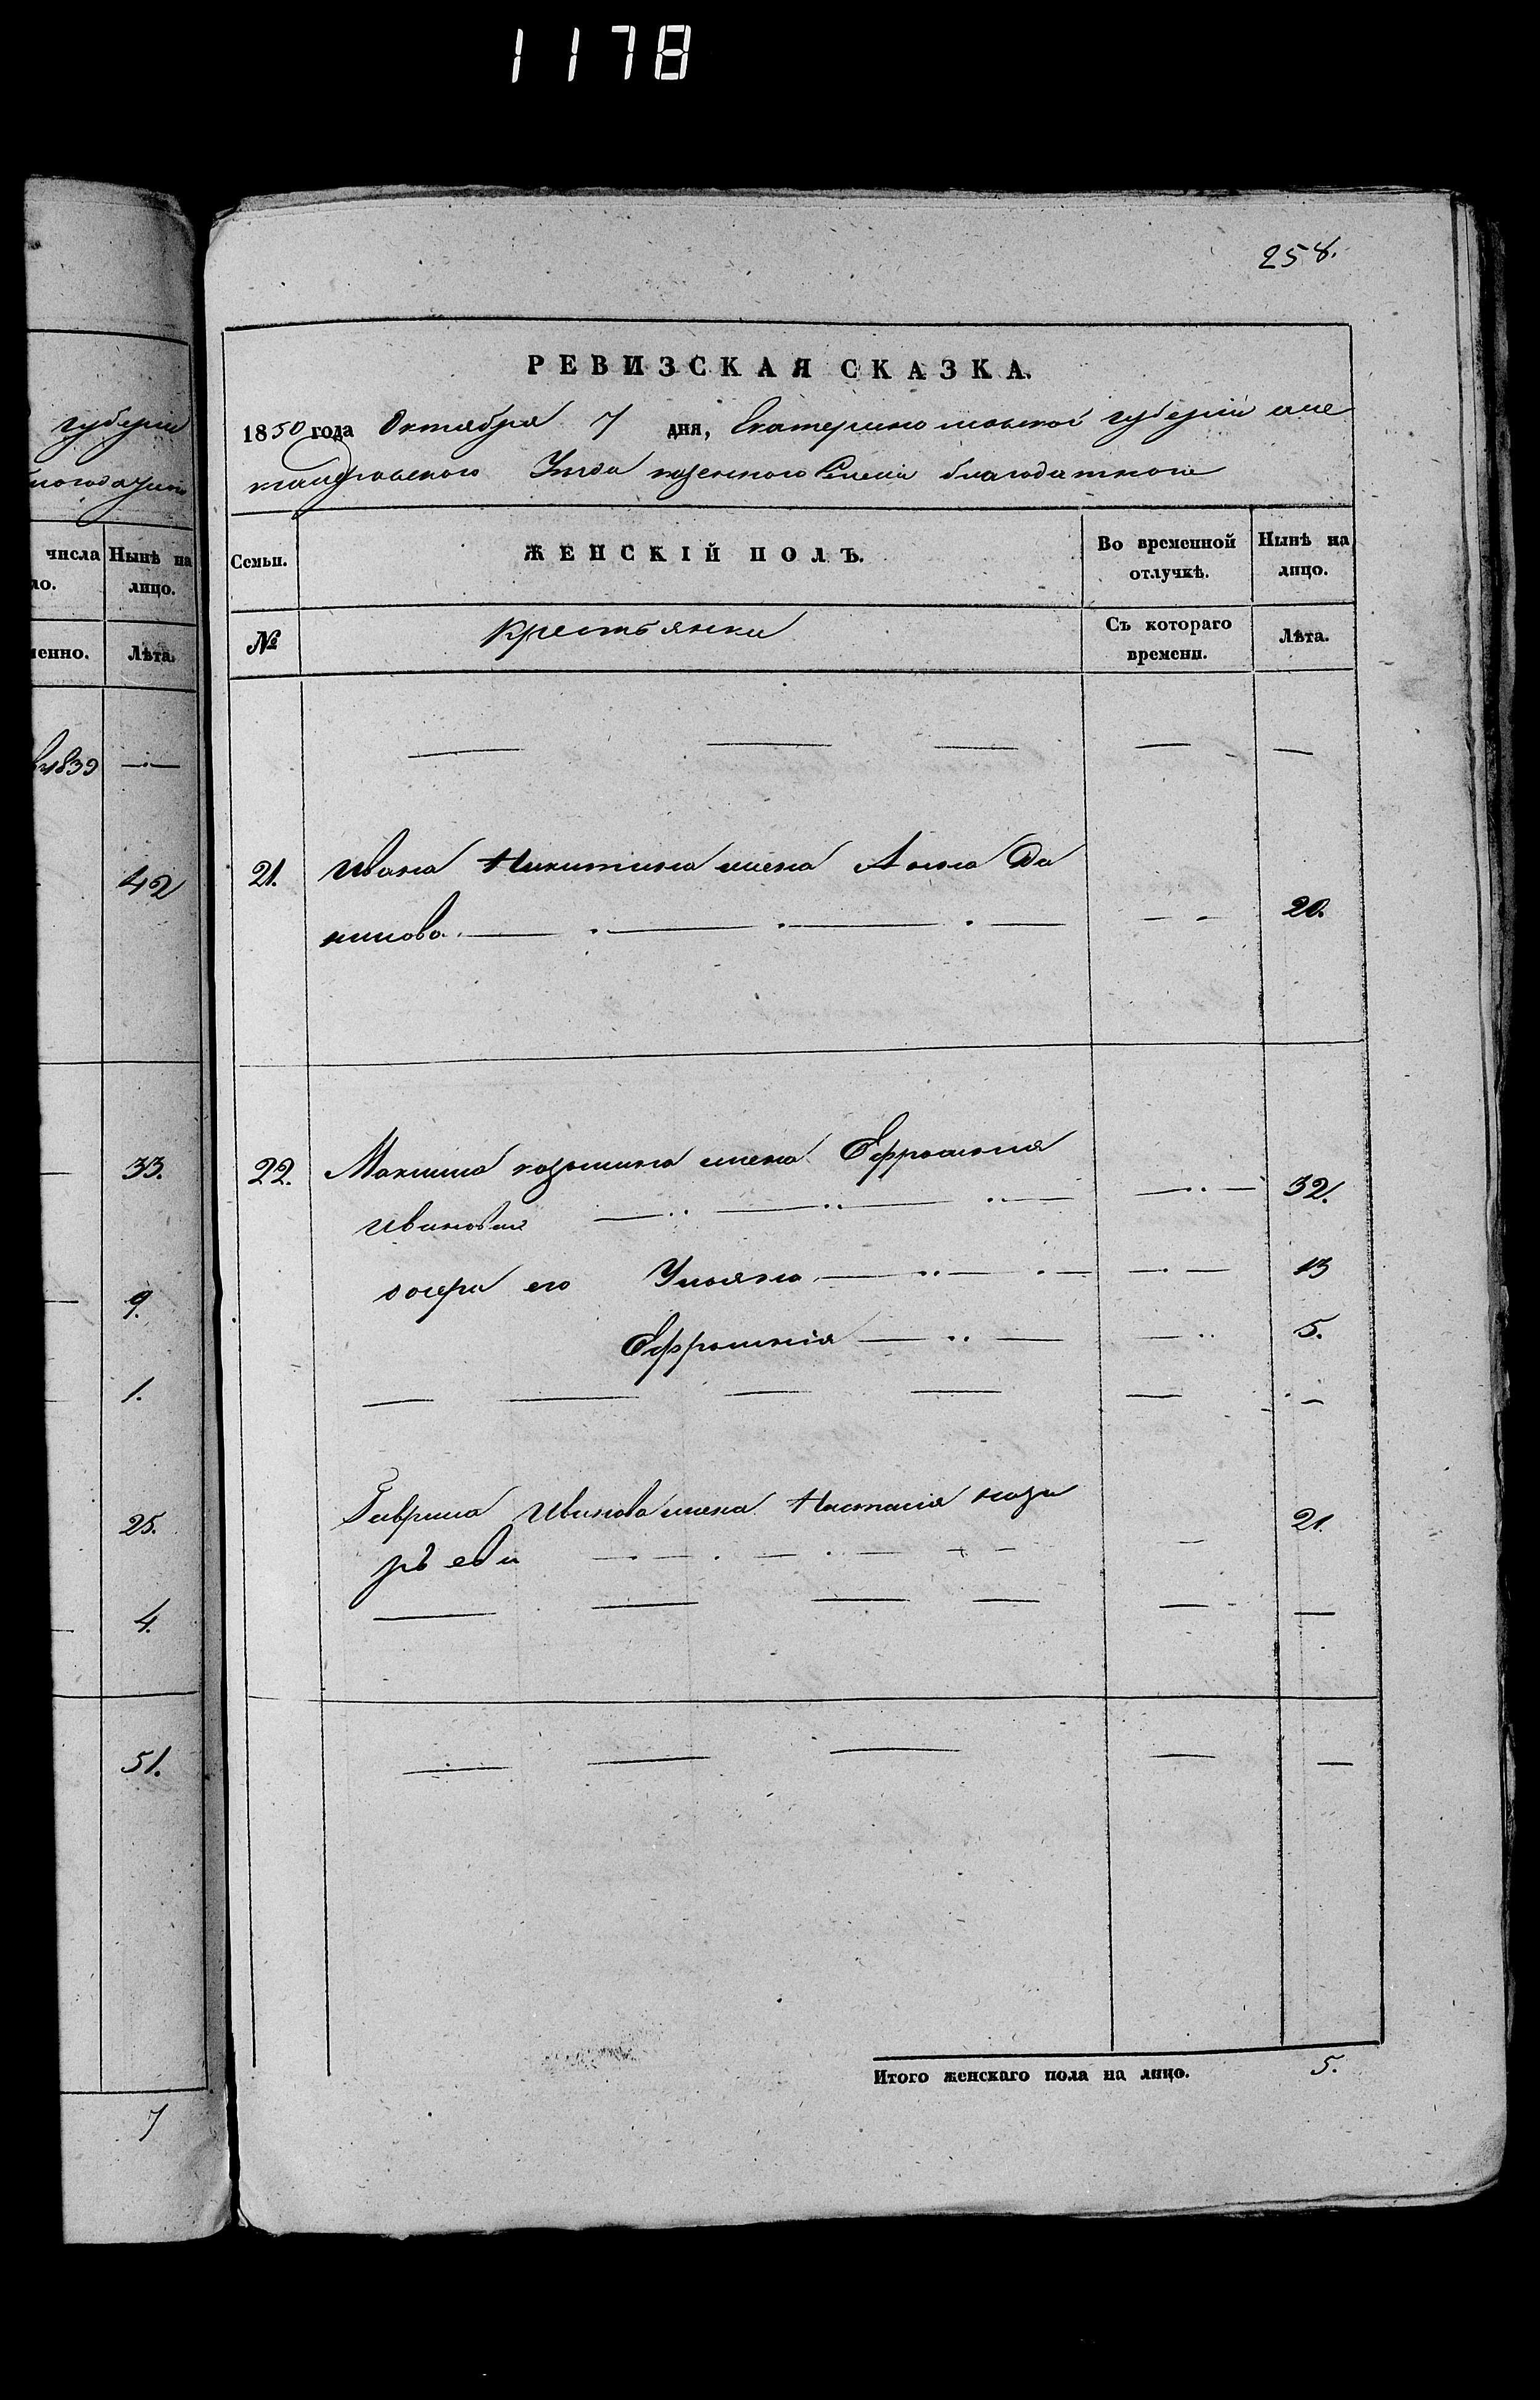 1178
258.
губерніи
числа Нынѣ на
ло. лицо.
менно. Лѣта.
1839 —
42
33.
9.
1.
25.
4.
51.
7
РЕВИЗСКАЯ СКАЗКА.
1850 года Октября 7 дня, Екатеринославской губерніи Але
ксандровского Уезда казенного Селенія благодатного
Семьи. ЖЕНСКІЙ ПОЛЪ. Во временной отлучкѣ. Нынѣ на лицо.
№ Крестьянки Съ котораго времени. Лѣта.
21. Ивана Никитина жена Анна Да
нилова 20.
22. Максима козьмина жена Ефросинія
Иванова 32.
дочери его Ульяна 13
Ефросинія 5.
Гаврила Иванова жена Настасія наза
рьева 21.
Итого женскаго пола на лицо. 5.